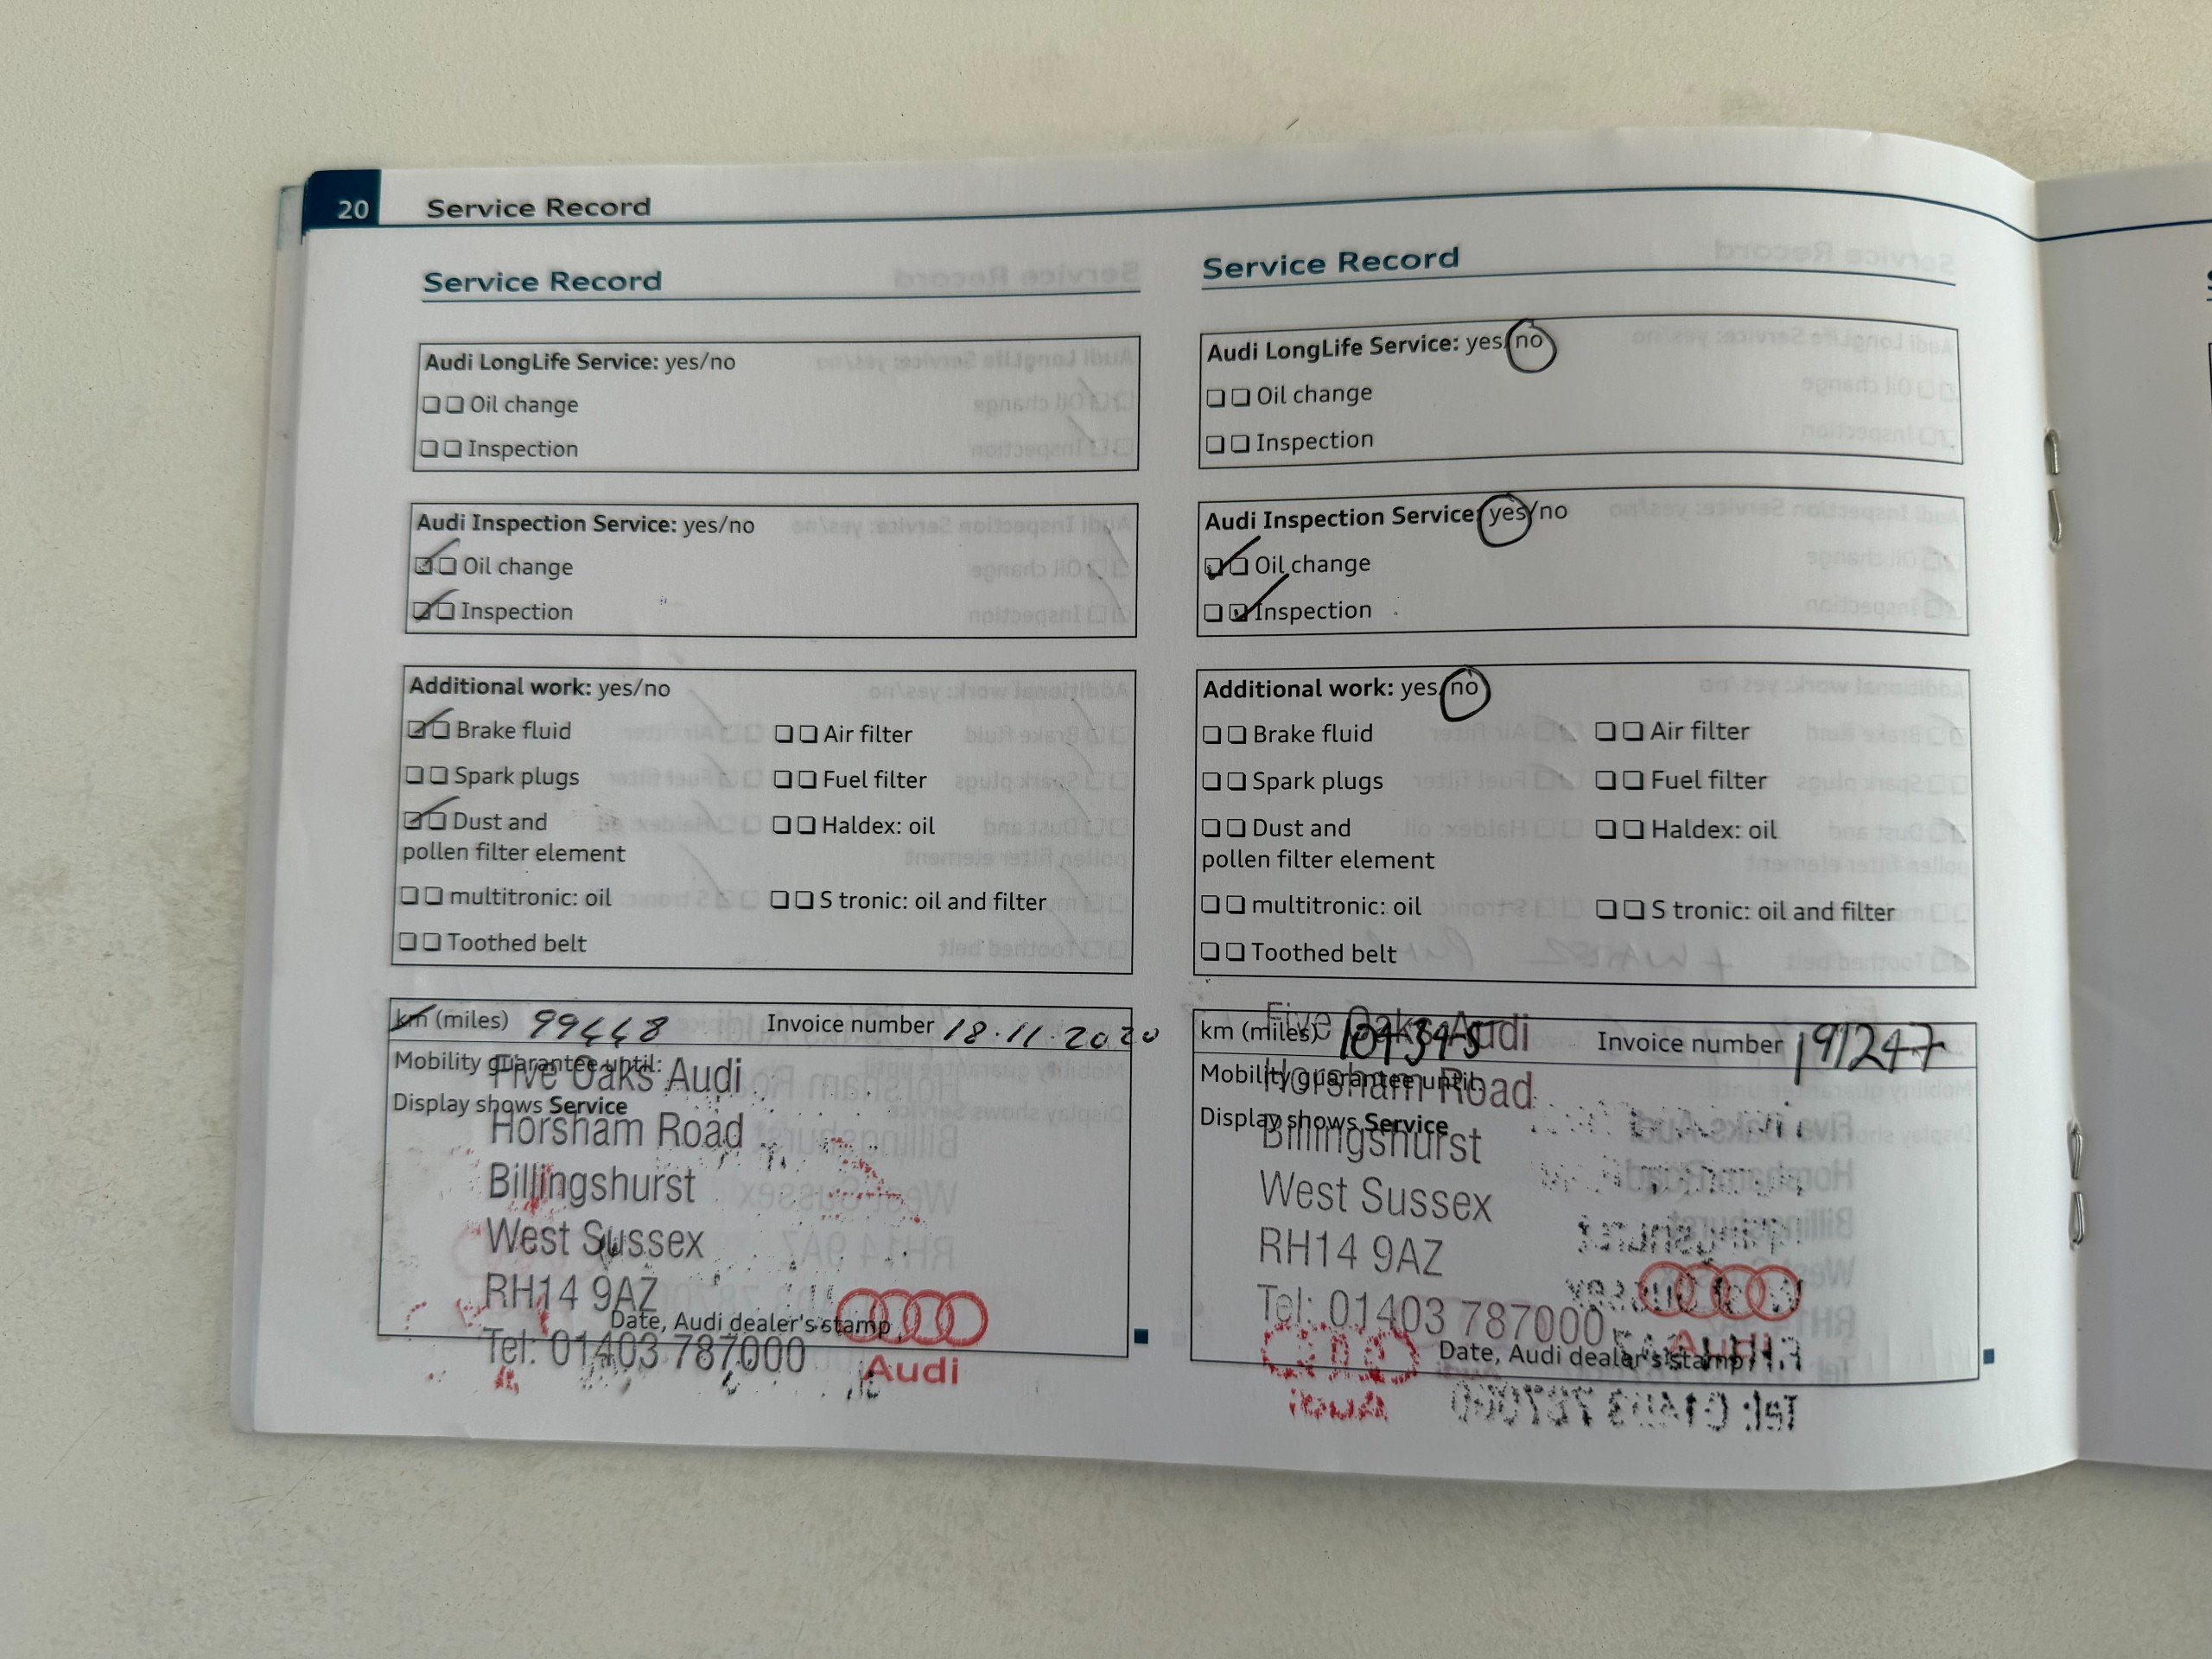 20 Service Record
Service Record
Audi LongLife Service: yes/no
❏❏ Oil change
❏❏ Inspection
Audi Inspection Service: yes/no
❏❏ Oil change
❏❏ Inspection
Additional work: yes/no
❏❏ Brake fluid ❏❏ Air filter
❏❏ Spark plugs ❏❏ Fuel filter
❏❏ Dust and ❏❏ Haldex: oil
pollen filter element
❏❏ multitronic: oil ❏❏ S tronic: oil and filter
❏❏ Toothed belt
km (miles) 99448 Invoice number 18.11.2020
Mobility guarantee until:
Five Oaks Audi
Display shows Service
Horsham Road
Billingshurst
West Sussex
RH14 9AZ
Date, Audi dealer's stamp
Tel: 01403 787000
Audi
Service Record
Audi LongLife Service: yes/no
❏❏ Oil change
❏❏ Inspection
Audi Inspection Service: yes/no
❏❏ Oil change
❏❏ Inspection
Additional work: yes/no
❏❏ Brake fluid ❏❏ Air filter
❏❏ Spark plugs ❏❏ Fuel filter
❏❏ Dust and ❏❏ Haldex: oil
pollen filter element
❏❏ multitronic: oil ❏❏ S tronic: oil and filter
❏❏ Toothed belt
Five Oaks Audi
km (miles) Invoice number 191247
Mobility guarantee until:
Horsham Road
Display shows Service
Billingshurst
West Sussex
RH14 9AZ
Tel: 01403 787000
Date, Audi dealer's stamp